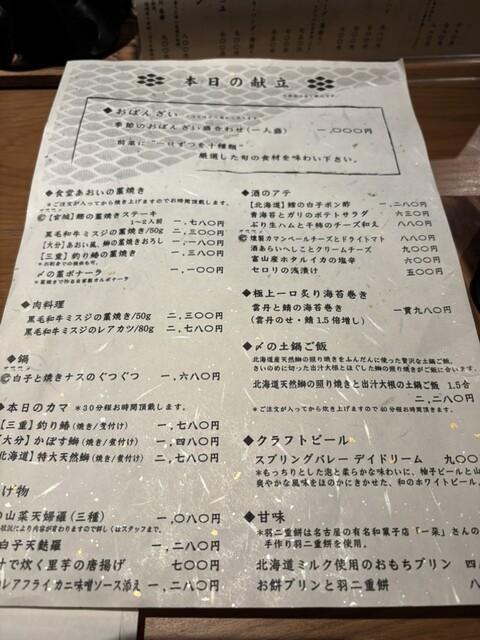 本日の献立
◆おばんざい
季節のおばんざい盛合わせ(一人盛) 一,〇〇〇円
前菜に"一口ずつを十種類"
厳選した旬の食材を味わい下さい。
◆食堂あおいの藁焼き
*ご注文が入ってから焼き上げますのでお時間頂戴します。
オススメ
【宮城】鰹の藁焼きステーキ 一,七八〇円
1~2人前
黒毛和牛ミスジの藁焼き/50g 二,三〇〇円
【大分】あおい風、鰤の藁焼きおろし 一,七八〇円
【三重】釣り鰆の藁焼き 一,三八〇円
〆の藁ボナーラ 一,一〇〇円
◆肉料理
黒毛和牛ミスジの藁焼き/50g 二,三〇〇円
黒毛和牛ミスジのレアカツ/80g 二,七八〇円
◆鍋
オススメ
白子と焼きナスのぐつぐつ 一,六八〇円
◆本日のカマ *30分程お時間頂戴します。
【三重】釣り鰆(焼き/煮付け) 一,七八〇円
【大分】かぼす鰤(焼き/煮付け) 一,四八〇円
北海道】特大天然鰤(焼き/煮付け) 二,七八〇円
げ物
の山菜天婦羅(三種) 一,〇八〇円
白子天麩羅 一,二八〇円
汁で炊く里芋の唐揚げ 七〇〇円
レアフライ カニ味噌ソース添え 一,二八〇円
◆酒のアテ
【北海道】鱈の白子ポン酢 一,二八〇円
青海苔とガリのポテトサラダ 六三〇円
ぶり生ハムと干柿のチーズ和え 八八〇円
オススメ
燻製カマンベールチーズとドライトマト 八八〇円
酒あらいへしことクリームチーズ 九〇〇円
富山産ホタルイカの塩辛 六〇〇円
セロリの浅漬け 五〇〇円
◆極上一口炙り海苔巻き
雲丹と鯖の海苔巻き 一貫九八〇円
(雲丹のせ・鯖1.5倍増し)
◆〆の土鍋ご飯
北海道産天然鰤の照り焼きをふんだんに使った贅沢な土鍋ご飯。
さいのめに切った出汁大根とほぐした鰤の照り焼きがご飯に合います。
北海道天然鰤の照り焼きと出汁大根の土鍋ご飯 1.5合
二,二八〇円
*ご注文が入ってから炊き上げますので40分程お時間頂戴します。
◆クラフトビール
スプリングバレー デイドリーム 九〇〇
*もっちりとした泡と柔らかな味わいに、柚子ピールと山
爽やかな風味をほのかにきかせた、和のホワイトビール。
◆甘味
*羽二重餅は名古屋の有名和菓子店「一朶」さんの
手作り羽二重餅を使用。
北海道ミルク使用のおもちプリン 四
お餅プリンと羽二重餅 八